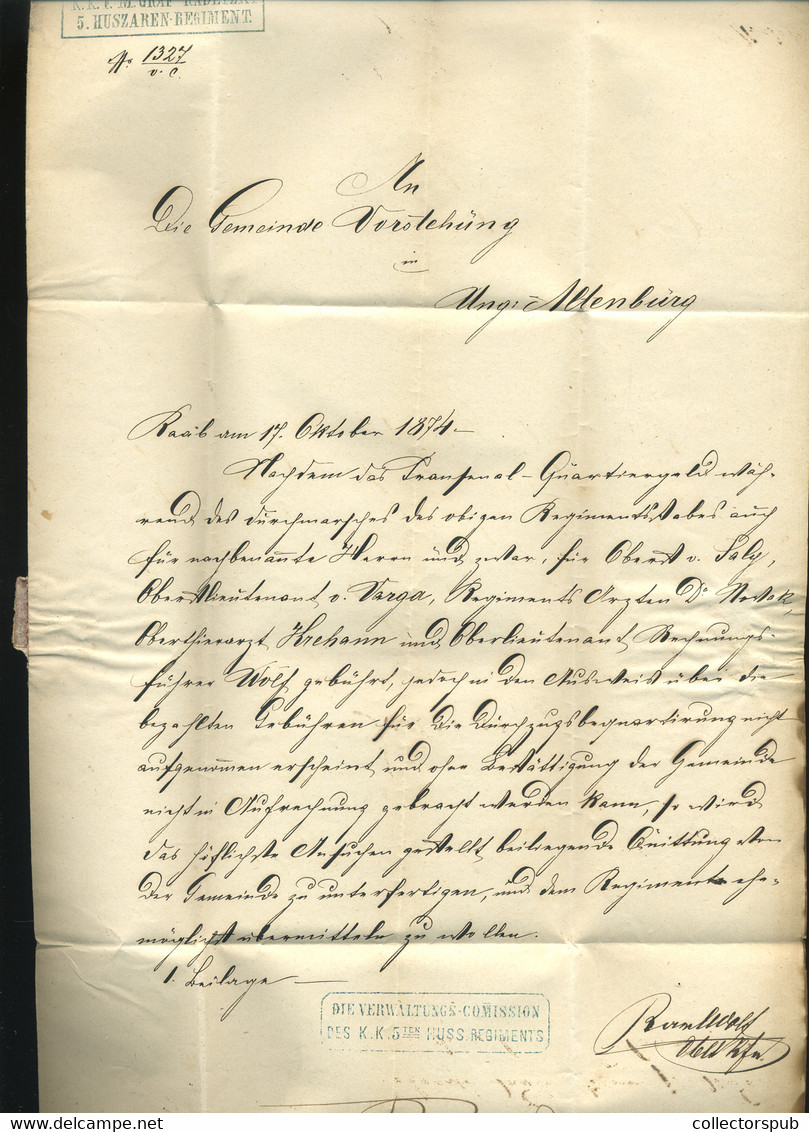 K.K. F. M. GRAF RADETZKY
5. HUSZAREN-REGIMENT.
No 1327
v. c.
An
Die Gemeinde Vorstehung
in
Ung: Altenburg
Raab am 17. Oktober 1874.
Nachdem das Transenal-Quartiergeld wäh-
rend des Durchmarsches des obigen Regimentsstabes auch
für nachbenannte Herrn und zwar, für Oberst v.
Oberstlieutenant v. Varga, Regiments Arzten Dr Novak,
Oberthierarzt Krehann und Oberlieutenant Rechnungs-
führer Wolf gebührt, jedoch in den Ausweis über die
bezahlten Gebühren für die Durchzugsbequartirung nicht
aufgenommen erscheint und ohne Bestättigung der Gemeinde
nicht in Aufrechnung gebracht werden kann, so wird
das höflichste Ansuchen gestellt beiliegende Quittung von
der Gemeinde zu unterfertigen, und dem Regimente ehe-
möglichst übermitteln zu wollen.
1. Beilage
DIE VERWALTUNGS-COMISSION
DES K.K. 5TEN HUSS. REGIMENTS
Karl Wolf
collectorspub